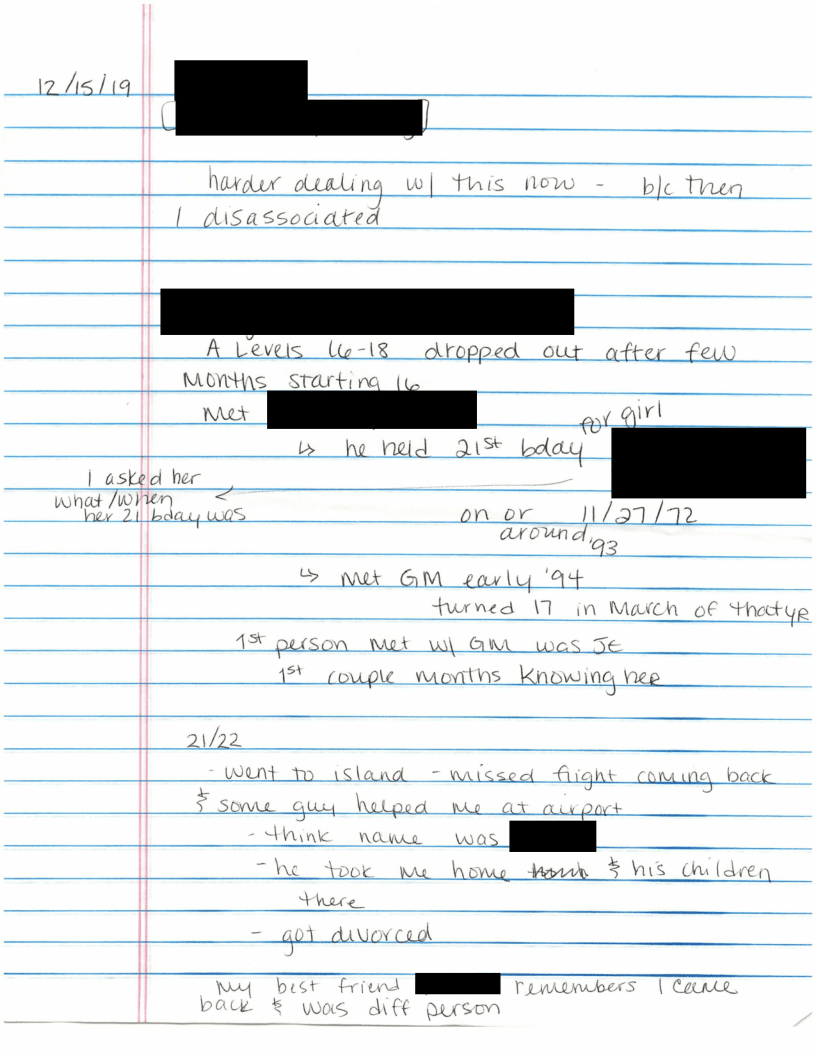 12/15/19
harder dealing w/ this now - b/c then
I disassociated
A Levels 16-18 dropped out after few
Months starting 16
Met
for girl
↳ he held 21st bday
I asked her
what/when
her 21 bday was
on or 11/27/72
around '93
↳ Met GM early '94
turned 17 in March of that yr
1st person met w/ GM was JE
1st couple months knowing her
21/22
- went to island - missed flight coming back
& some guy helped me at airport
- think name was
- he took me home & his children
there
- got divorced
My best friend remembers I came
back & was diff person